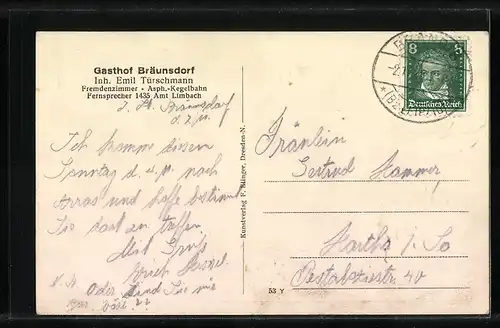 Gasthof Bräunsdorf
Inh. Emil Türschmann
Fremdenzimmer - Asph.-Kegelbahn
Fernsprecher 1435 Amt Limbach
Bräunsdorf
Ich komme diesen
Sonntag d. nach
und hoffe bestimmt
Sie dort an treffen
Mit Gruß
Oder sind Sie mir
böse ??
Kunstverlag F. Dresden-N.
53 Y
8 8
Deutsches Reich
Fräulein
Gertrud Hammer
Hartha i. Sa
Pestalozzistr 40